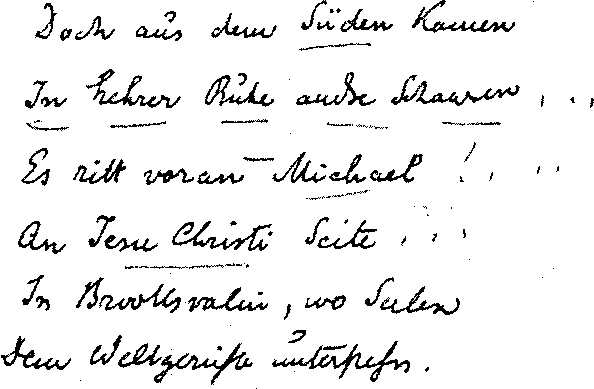 Doch aus dem Süden kamen
In hehrer Ruhe andre Scharen ...
Es ritt voran Michael! ...
An Jesu Christi Seite ...
In Brooksvalin, wo Seelen
Dem Weltgerichte unterstehn.